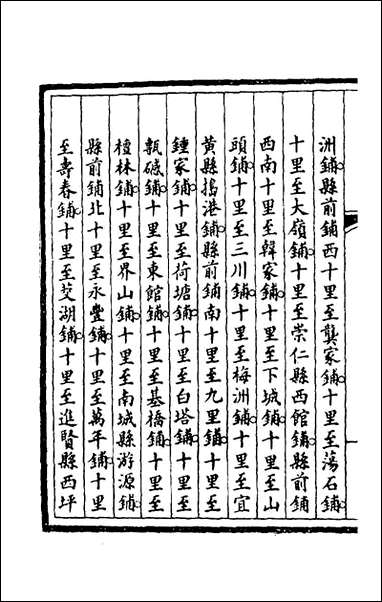 洲鋪縣前鋪西十里至龔家鋪十里至蕩石鋪
十里至大嶺鋪十里至崇仁縣西館鋪縣前鋪
西南十里至韓家鋪十里至下城鋪十里至山
頭鋪十里至三川鋪十里至梅洲鋪十里至宜
黃縣搗港鋪縣前鋪南十里至九里鋪十里至
鍾家鋪十里至荷塘鋪十里至白塔鋪十里至
瓻磩鋪十里至東館鋪十里至墓橋鋪十里至
檀林鋪十里至界山鋪十里至南城縣游源鋪
縣前鋪北十里至永豐鋪十里至萬年鋪十里
至壽春鋪十里至艾湖鋪十里至進賢縣西坪